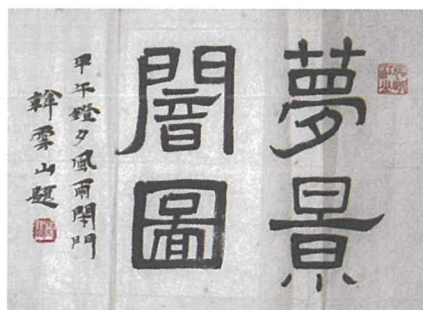 夢景
闇圖
甲午鐙夕風雨閉門
雲山題